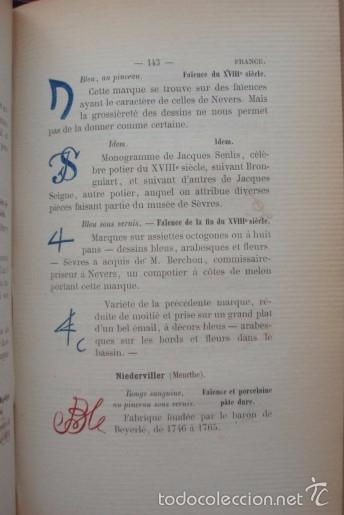 — 143 — FRANCE.
Bleu, au pinceau. Faïence du XVIIIe siècle.
Cette marque se trouve sur des faïences
ayant le caractère de celles de Nevers. Mais
la grossièreté des dessins ne nous permet
pas de la donner comme certaine.
Idem. Idem.
Monogramme de Jacques Senlis, célè-
bre potier du XVIIIe siècle, suivant Bron-
gniart, et suivant d'autres de Jacques
Seigne, autre potier, auquel on attribue diverses
pièces faisant partie du musée de Sèvres.
4
Bleu sous vernis. — Faïence de la fin du XVIIIe siècle.
Marques sur assiettes octogones ou à huit
pans — dessins bleus, arabesques et fleurs.
— Sèvres a acquis de M. Berchon, commissaire-
priseur à Nevers, un compotier à côtes de melon
portant cette marque.
4c
Variété de la précédente marque, ré-
duite de moitié et prise sur un grand plat
d'un bel émail, à décors bleus — arabes-
ques sur les bords et fleurs dans le
bassin. —
Niederviller (Meurthe).
Rouge sanguine, Faïence et porcelaine
au pinceau sous vernis. pâte dure.
Fabrique fondée par le baron de
Beyerlé, de 1746 à 1765.
todocoleccion.net